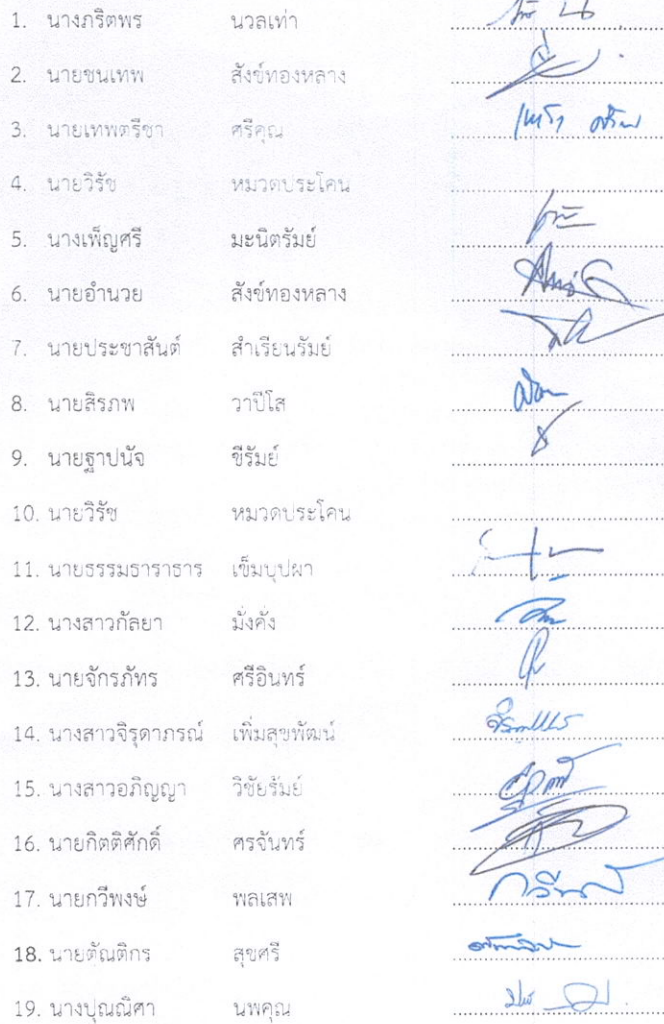 1. นางภริตพร นวลเท่า
2. นายชนเทพ สังข์ทองหลาง
3. นายเทพตรีชา ศรีคุณ
4. นายวิรัช หมวดประโคน
5. นางเพ็ญศรี มะนิตรัมย์
6. นายอำนวย สังข์ทองหลาง
7. นายประชาสันต์ สำเรียนรัมย์
8. นายสิรภพ วาปีโส
9. นายฐาปนัจ ชีรัมย์
10. นายวิรัช หมวดประโคน
11. นายธรรมธาราธาร เข็มบุปผา
12. นางสาวกัลยา มั่งคั่ง
13. นายจักรภัทร ศรีอินทร์
14. นางสาวจิรุดาภรณ์ เพิ่มสุขพัฒน์
15. นางสาวอภิญญา วิชัยรัมย์
16. นายกิตติศักดิ์ ศรจันทร์
17. นายกวีพงษ์ พลเสพ
18. นายตัณติกร สุขศรี
19. นางปุณณิศา นพคุณ